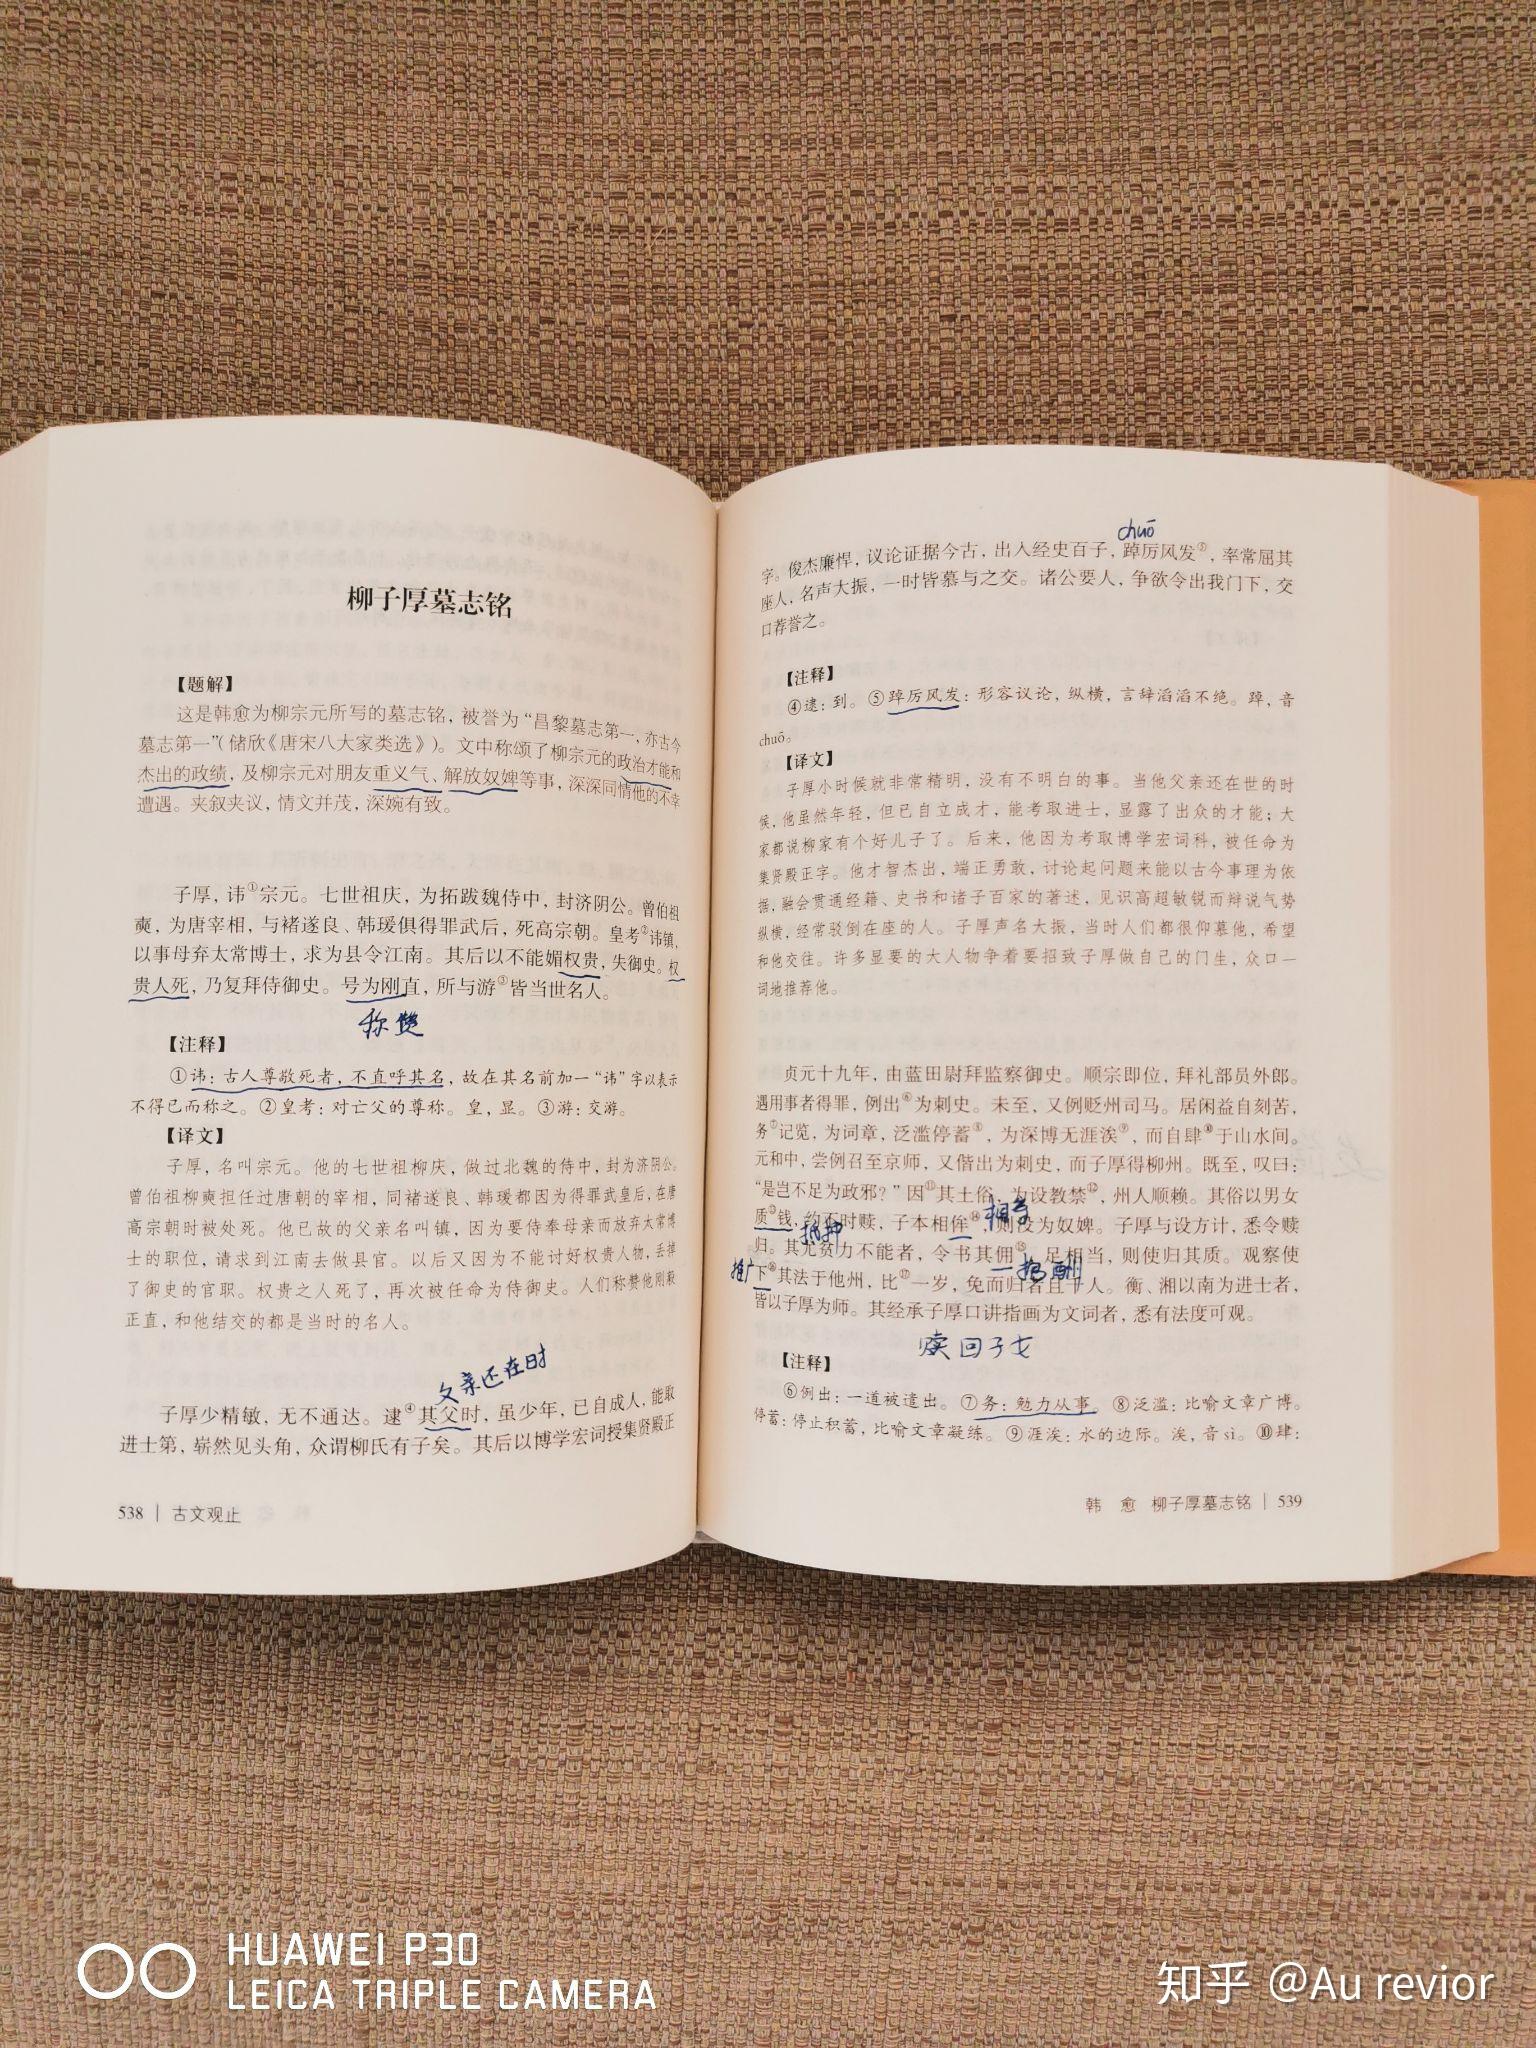 柳子厚墓志铭
【题解】
这是韩愈为柳宗元所写的墓志铭，被誉为“昌黎墓志第一，亦古今
墓志第一”（储欣《唐宋八大家类选》）。文中称颂了柳宗元的政治才能和
杰出的政绩，及柳宗元对朋友重义气、解放奴婢等事，深深同情他的不幸
遭遇。夹叙夹议，情文并茂，深婉有致。
子厚，讳①宗元。七世祖庆，为拓跋魏侍中，封济阴公。曾伯祖
奭，为唐宰相，与褚遂良、韩瑗俱得罪武后，死高宗朝。皇考②讳镇，
以事母弃太常博士，求为县令江南。其后以不能媚权贵，失御史。权
贵人死，乃复拜侍御史。号为刚直，所与游③皆当世名人。
称赞
【注释】
①讳：古人尊敬死者，不直呼其名，故在其名前加一“讳”字以表示
不得已而称之。②皇考：对亡父的尊称。皇，显。③游：交游。
【译文】
子厚，名叫宗元。他的七世祖柳庆，做过北魏的侍中，封为济阴公。
曾伯祖柳奭担任过唐朝的宰相，同褚遂良、韩瑗都因为得罪武皇后，在唐
高宗朝时被处死。他已故的父亲名叫镇，因为要侍奉母亲而放弃太常博
士的职位，请求到江南去做县官。以后又因为不能讨好权贵人物，丢掉
了御史的官职。权贵之人死了，再次被任命为侍御史。人们称赞他刚毅
正直，和他结交的都是当时的名人。
父亲还在时
子厚少精敏，无不通达。逮④其父时，虽少年，已自成人，能取
进士第，崭然见头角，众谓柳氏有子矣。其后以博学宏词授集贤殿正
538 | 古文观止
chuō
字。俊杰廉悍，议论证据今古，出入经史百子，踔厉风发⑤，率常屈其
座人，名声大振，一时皆慕与之交。诸公要人，争欲令出我门下，交
口荐誉之。
【注释】
④逮：到。⑤踔厉风发：形容议论，纵横，言辞滔滔不绝。踔，音
chuō。
【译文】
子厚小时候就非常精明，没有不明白的事。当他父亲还在世的时
候，他虽然年轻，但已自立成才，能考取进士，显露了出众的才能；大
家都说柳家有个好儿子了。后来，他因为考取博学宏词科，被任命为
集贤殿正字。他才智杰出，端正勇敢，讨论起问题来能以古今事理为依
据，融会贯通经籍、史书和诸子百家的著述，见识高超敏锐而辩说气势
纵横，经常驳倒在座的人。子厚声名大振，当时人们都很仰慕他，希望
和他交往。许多显要的大人物争着要招致子厚做自己的门生，众口一
词地推荐他。
贞元十九年，由蓝田尉拜监察御史。顺宗即位，拜礼部员外郎。
遇用事者得罪，例出⑥为刺史。未至，又例贬州司马。居闲益自刻苦，
务⑦记览，为词章，泛滥停蓄⑧，为深博无涯涘⑨，而自肆⑩于山水间。
元和中，尝例召至京师，又偕出为刺史，而子厚得柳州。既至，叹曰：
“是岂不足为政邪？”因⑪其土俗，为设教禁⑫，州人顺赖。其俗以男女
相等
质⑬钱，约不时赎，子本相侔⑭，则没为奴婢。子厚与设方计，悉令赎
抵押
归。其尤贫力不能者，令书其佣⑮，足相当，则使归其质。观察使
推广
报酬
下⑯其法于他州，比⑰一岁，免而归者且千人。衡、湘以南为进士者，
皆以子厚为师。其经承子厚口讲指画为文词者，悉有法度可观。
赎回子女
【注释】
⑥例出：一道被遣出。⑦务：勉力从事。⑧泛滥：比喻文章广博。
停蓄：停止积蓄，比喻文章凝练。⑨涯涘：水的边际。涘，音sì。⑩肆：
韩 愈 柳子厚墓志铭 | 539
HUAWEI P30
LEICA TRIPLE CAMERA
知乎 @Au revior